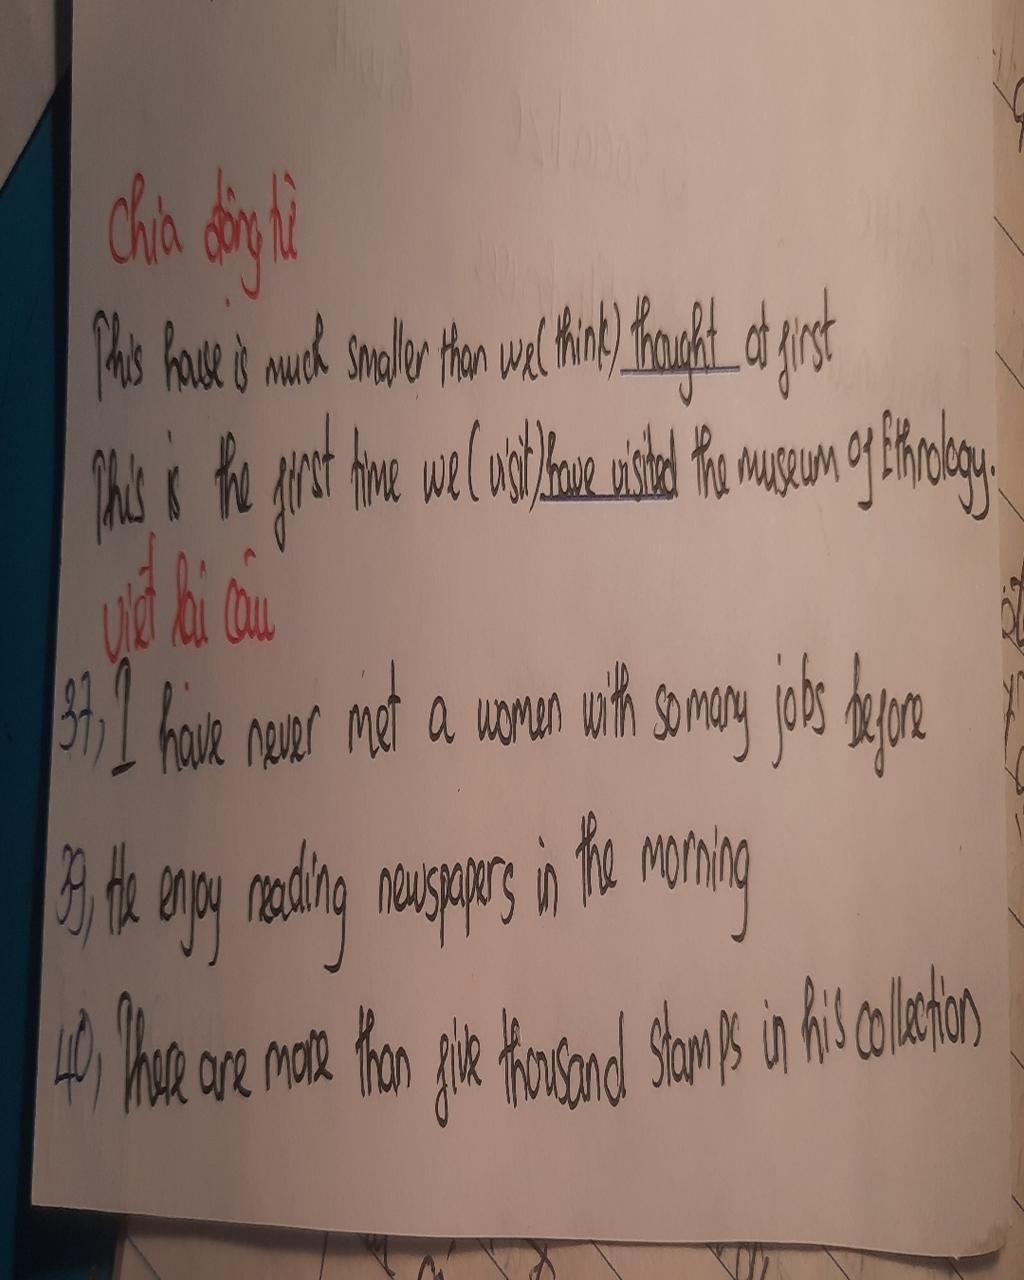 Chia động từ
This house is much smaller than we (think) thought at first
This is the first time we (visit) have visited the museum of Ethnology.
viết lại câu
37, I have never met a women with so many jobs before
39, He enjoy reading newspapers in the morning
40, There are more than five thousand stamps in his collection